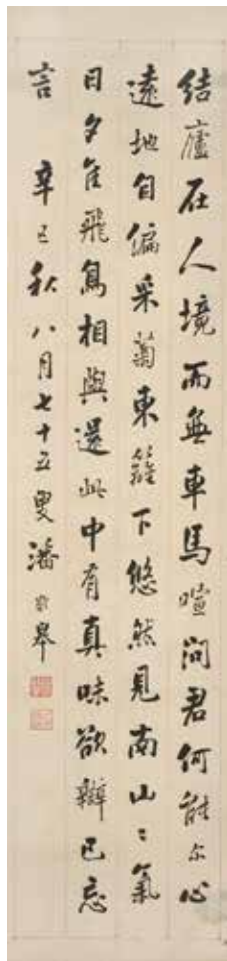 結廬在人境而無車馬喧問君何能尔心
遠地自偏采菊東籬下悠然見南山〻氣
日夕佳飛鳥相與還此中有真味欲辯已忘
言 辛巳秋八月七十五叟潘齡皋